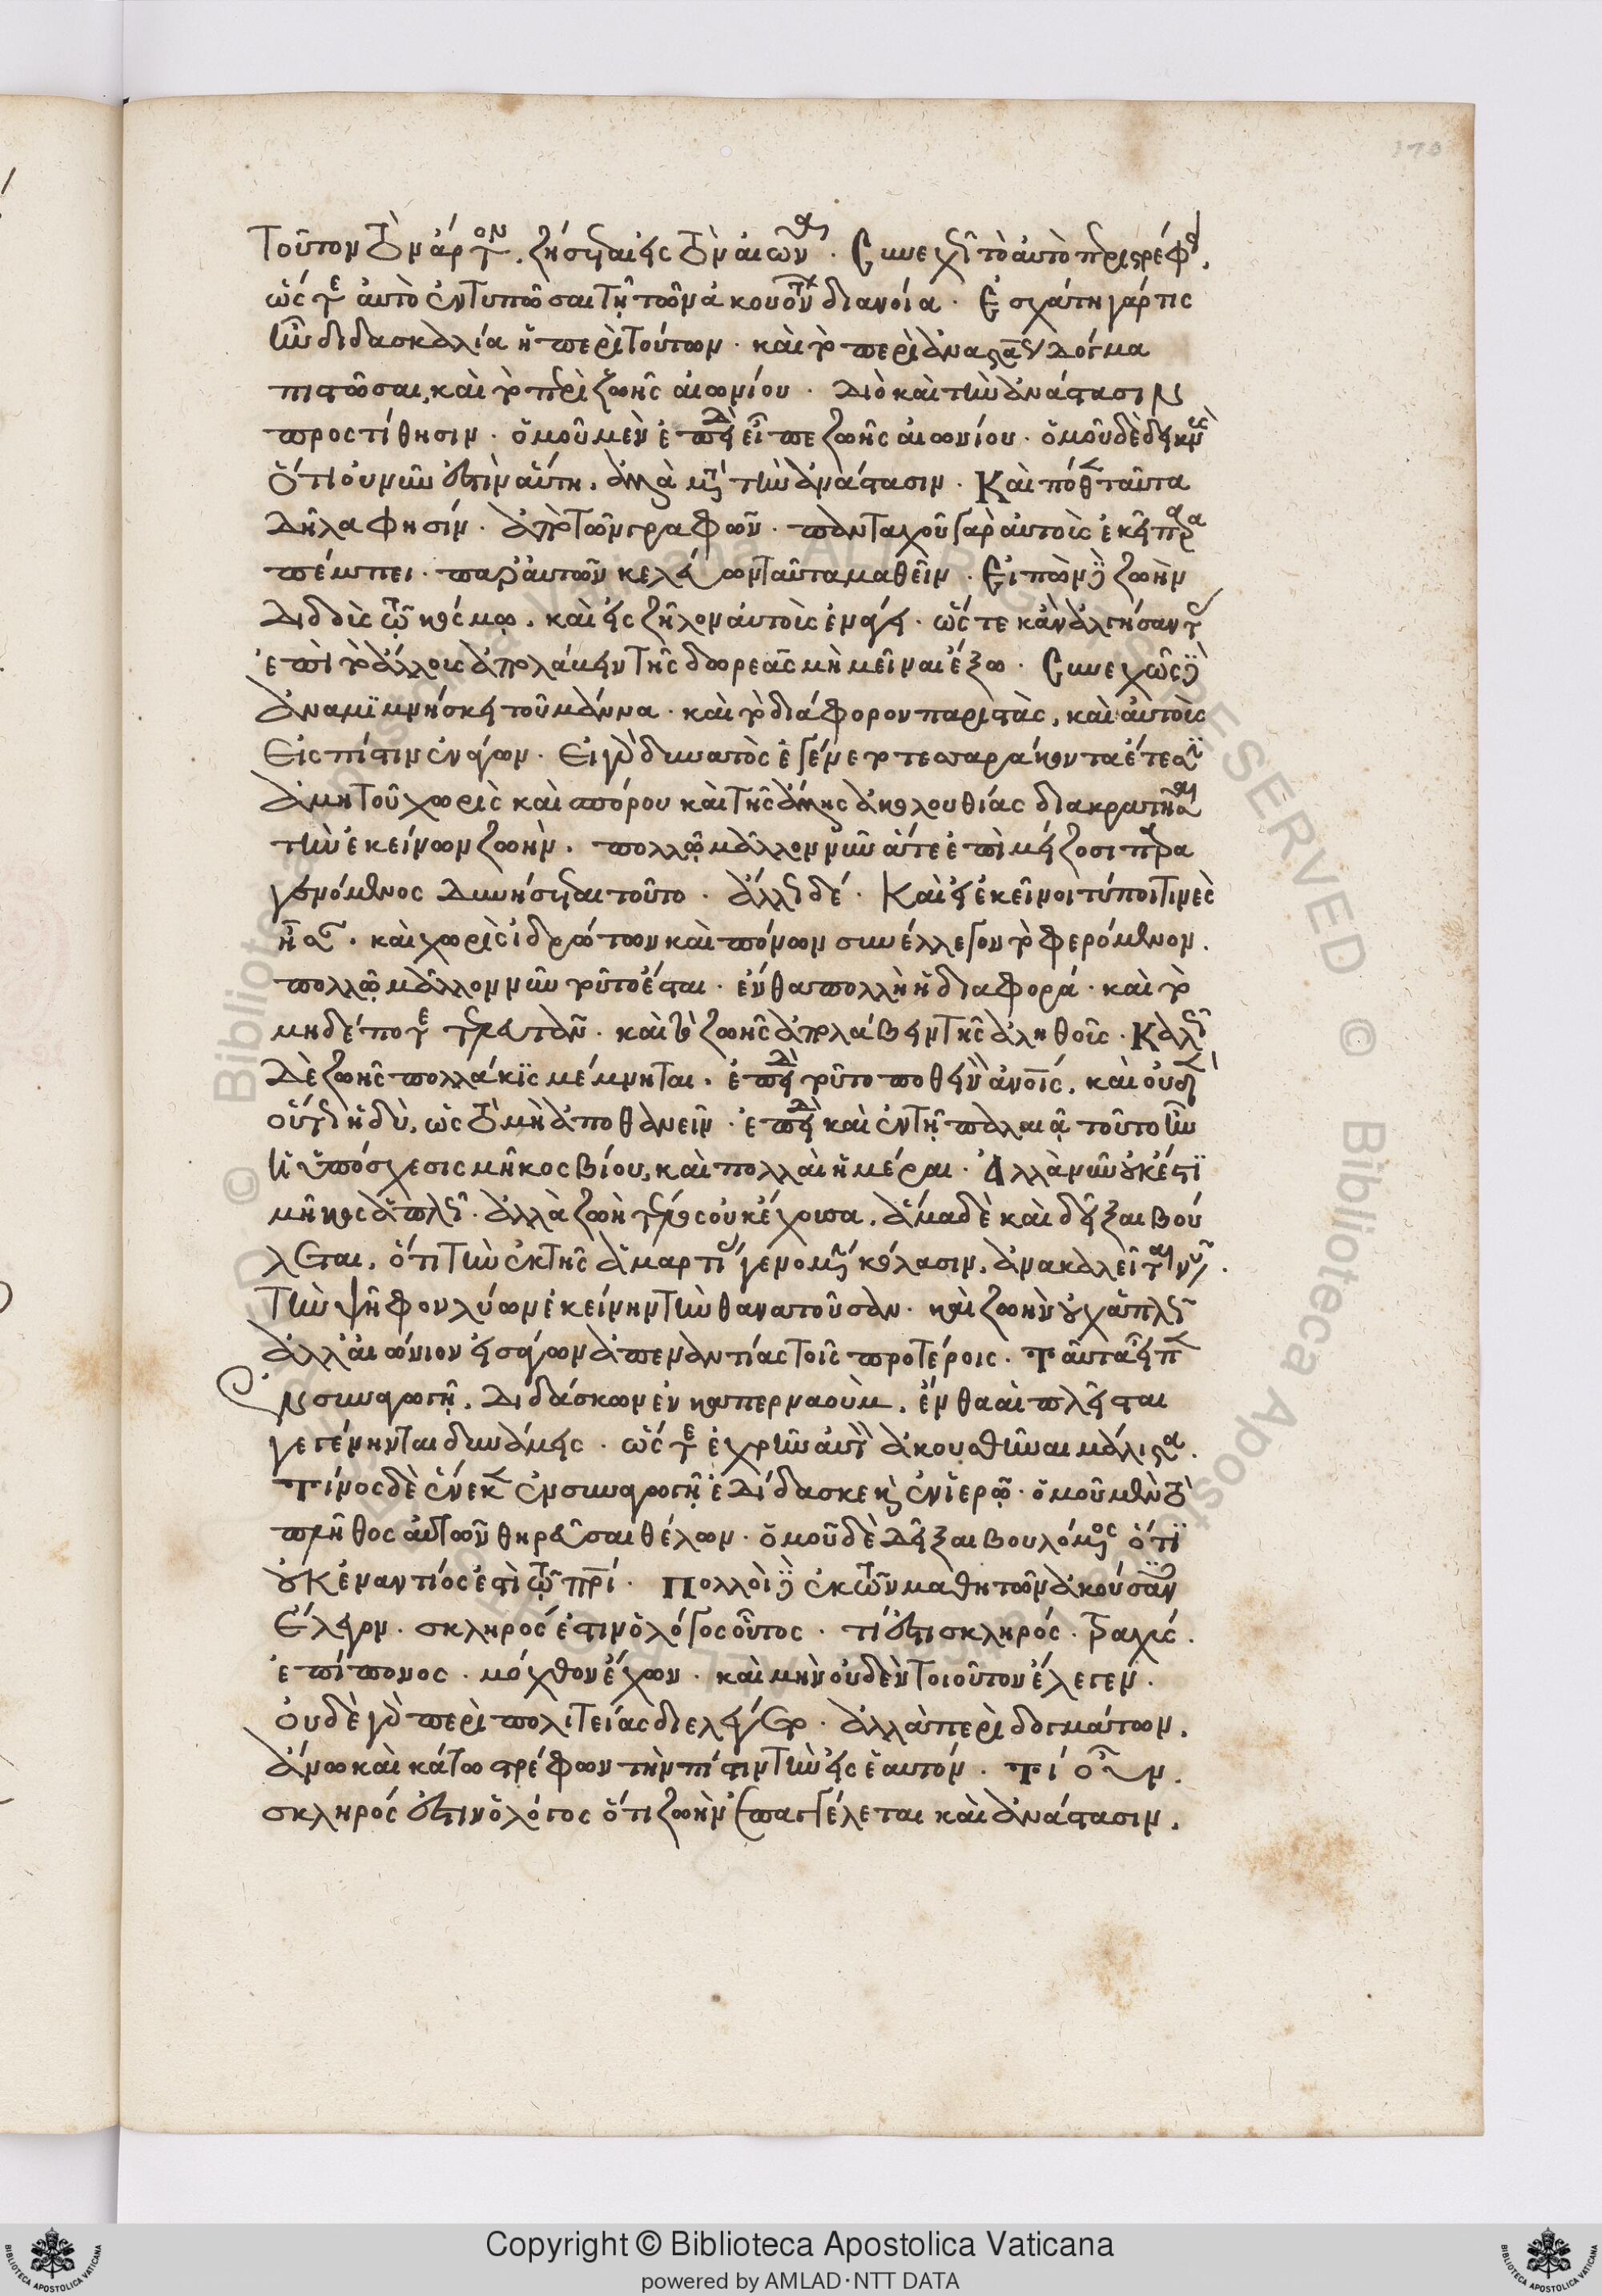 τοῦτον τὸν ἄρτον, ζήσεται εἰς τὸν αἰῶνα. Συνεχῶς τὸ αὐτὸ περιστρέφει,
ὥστε αὐτὸ ἐντυπῶσαι τῇ τῶν ἀκουόντων διανοίᾳ. Ἐσχάτη γάρ τις
ἦν διδασκαλία ἡ περὶ τούτων. καὶ τὸ περὶ ἀναστάσεως δόγμα
πιστῶσαι, καὶ τὸ περὶ ζωῆς αἰωνίου. Διὸ καὶ τὴν ἀνάστασιν
προστίθησιν. ὁμοῦ μὲν ἐπειδὴ εἶπε ζωῆς αἰωνίου. ὁμοῦ δὲ δεικνὺς
ὅτι οὐ νῦν ἐστιν αὕτη, ἀλλὰ μετὰ τὴν ἀνάστασιν. Καὶ πόθεν ταῦτα
δῆλα φησίν. ἀπὸ τῶν γραφῶν. πανταχοῦ γὰρ αὐτοὺς ἐκεῖ παρα
πέμπει. παρ' αὐτῶν κελεύων ταῦτα μαθεῖν. Εἰπὼν δὲ ζωὴν
διδοὺς τῷ κόσμῳ, καὶ εἰς ζῆλον αὐτοὺς ἐνάγει. ὥστε κἂν ἀλγήσαντας
ἐπὶ τὸ ἄλλους ἀπολαύειν τῆς δωρεᾶς μὴ μεῖναι ἔξω. Συνεχῶς δὲ
ἀναμϊμνήσκει τοῦ μάννα. καὶ τὸ διάφορον παριστὰς, καὶ αὐτοὺς
εἰς πίστιν ἐνάγων. Εἰ γὰρ δυνατὸς ἐγένετο τεσσαράκοντα ἔτεσιν
ἀμητοῦ χωρὶς καὶ σπόρου καὶ τῆς ἄλλης ἀκολουθίας διακρατῆσαι
τὴν ἐκείνων ζωὴν, πολλῷ μᾶλλον νῦν ἅτε ἐπὶ μείζοσι παρα
γενόμενος δυνήσεται τοῦτο. ἄλλως δέ. Καὶ εἰ ἐκεῖνοι τύποι τινὲς
ἦσαν. καὶ χωρὶς ἱδρώτων καὶ πόνων συνέλλεγον τὸ φερόμενον.
πολλῷ μᾶλλον νῦν τοῦτο ἔσται. ἔνθα πολλὴ ἡ διαφορά. καὶ τὸ
μηδέποτε τελευτᾶν. καὶ τὸ ζωῆς ἀπολαύειν τῆς ἀληθοῦς. Καλῶς
δὲ ζωῆς πολλάκϊς μέμνηται. ἐπειδὴ τοῦτο ποθεινὸν ἀνοις, καὶ οὐδὲν
οὕτως ἡδὺ, ὡς τὸ μὴ ἀποθανεῖν. ἐπειδὴ καὶ ἐν τῇ παλαιᾷ τοῦτο ἦν
ἡ ὑπόσχεσις μῆκος βίου, καὶ πολλαὶ ἡμέραι. Ἀλλὰ νῦν οὐκέτϊ
μῆκος ἁπλῶς. ἀλλὰ ζωὴ τέλος οὐκ ἔχουσα. ἅμα δὲ καὶ δεῖξαι βού
λεται, ὅτι τὴν ἐκ τῆς ἁμαρτίας γενομένην κόλασιν, ἀνακαλεῖται νῦν.
τὴν ψῆφον λύων ἐκείνην τὴν θανατοῦσαν. καὶ ζωὴν οὐχ ἁπλῶς
ἀλλ' αἰώνιον εἰσάγων ἀπεναντίας τοῖς προτέροις. Ταῦτα εἶπεν
ἐν συναγωγῇ, διδάσκων ἐν καπερναοὺμ, ἔνθα αἱ πλεῖσται
γεγένηνται δυνάμεις. ὥστε ἐχρῆν αὐτὸν ἀκουσθῆναι μάλιστα.
Τίνος δὲ ἕνεκεν ἐν συναγωγῇ ἐδίδασκε καὶ ἐν ἱερῷ. ὁμοῦ μὲν τὸ
πλῆθος αὐτῶν θηρεῦσαι θέλων. ὁμοῦ δὲ δεῖξαι βουλόμενος ὅτϊ
οὐκ ἐναντίος ἐστὶ τῷ πρί. Πολλοὶ δὲ ἐκ τῶν μαθητῶν ἀκούσαντες
ἔλεγον. σκληρός ἐστιν ὁ λόγος οὗτος. τί ἐστι σκληρός. τραχύς.
ἐπίπονος. μόχθον ἔχων. καὶ μὴν οὐδὲν τοιοῦτον ἔλεγεν.
οὐδὲ γὰρ περὶ πολιτείας διελέγετο. ἀλλὰ περὶ δογμάτων,
ἄνω καὶ κάτω στρέφων τὴν πίστιν τὴν εἰς ἑαυτόν. Τί οὖν,
σκληρός ἐστιν ὁ λόγος ὅτι ζωὴν ἐπαγγέλεται καὶ ἀνάστασιν,